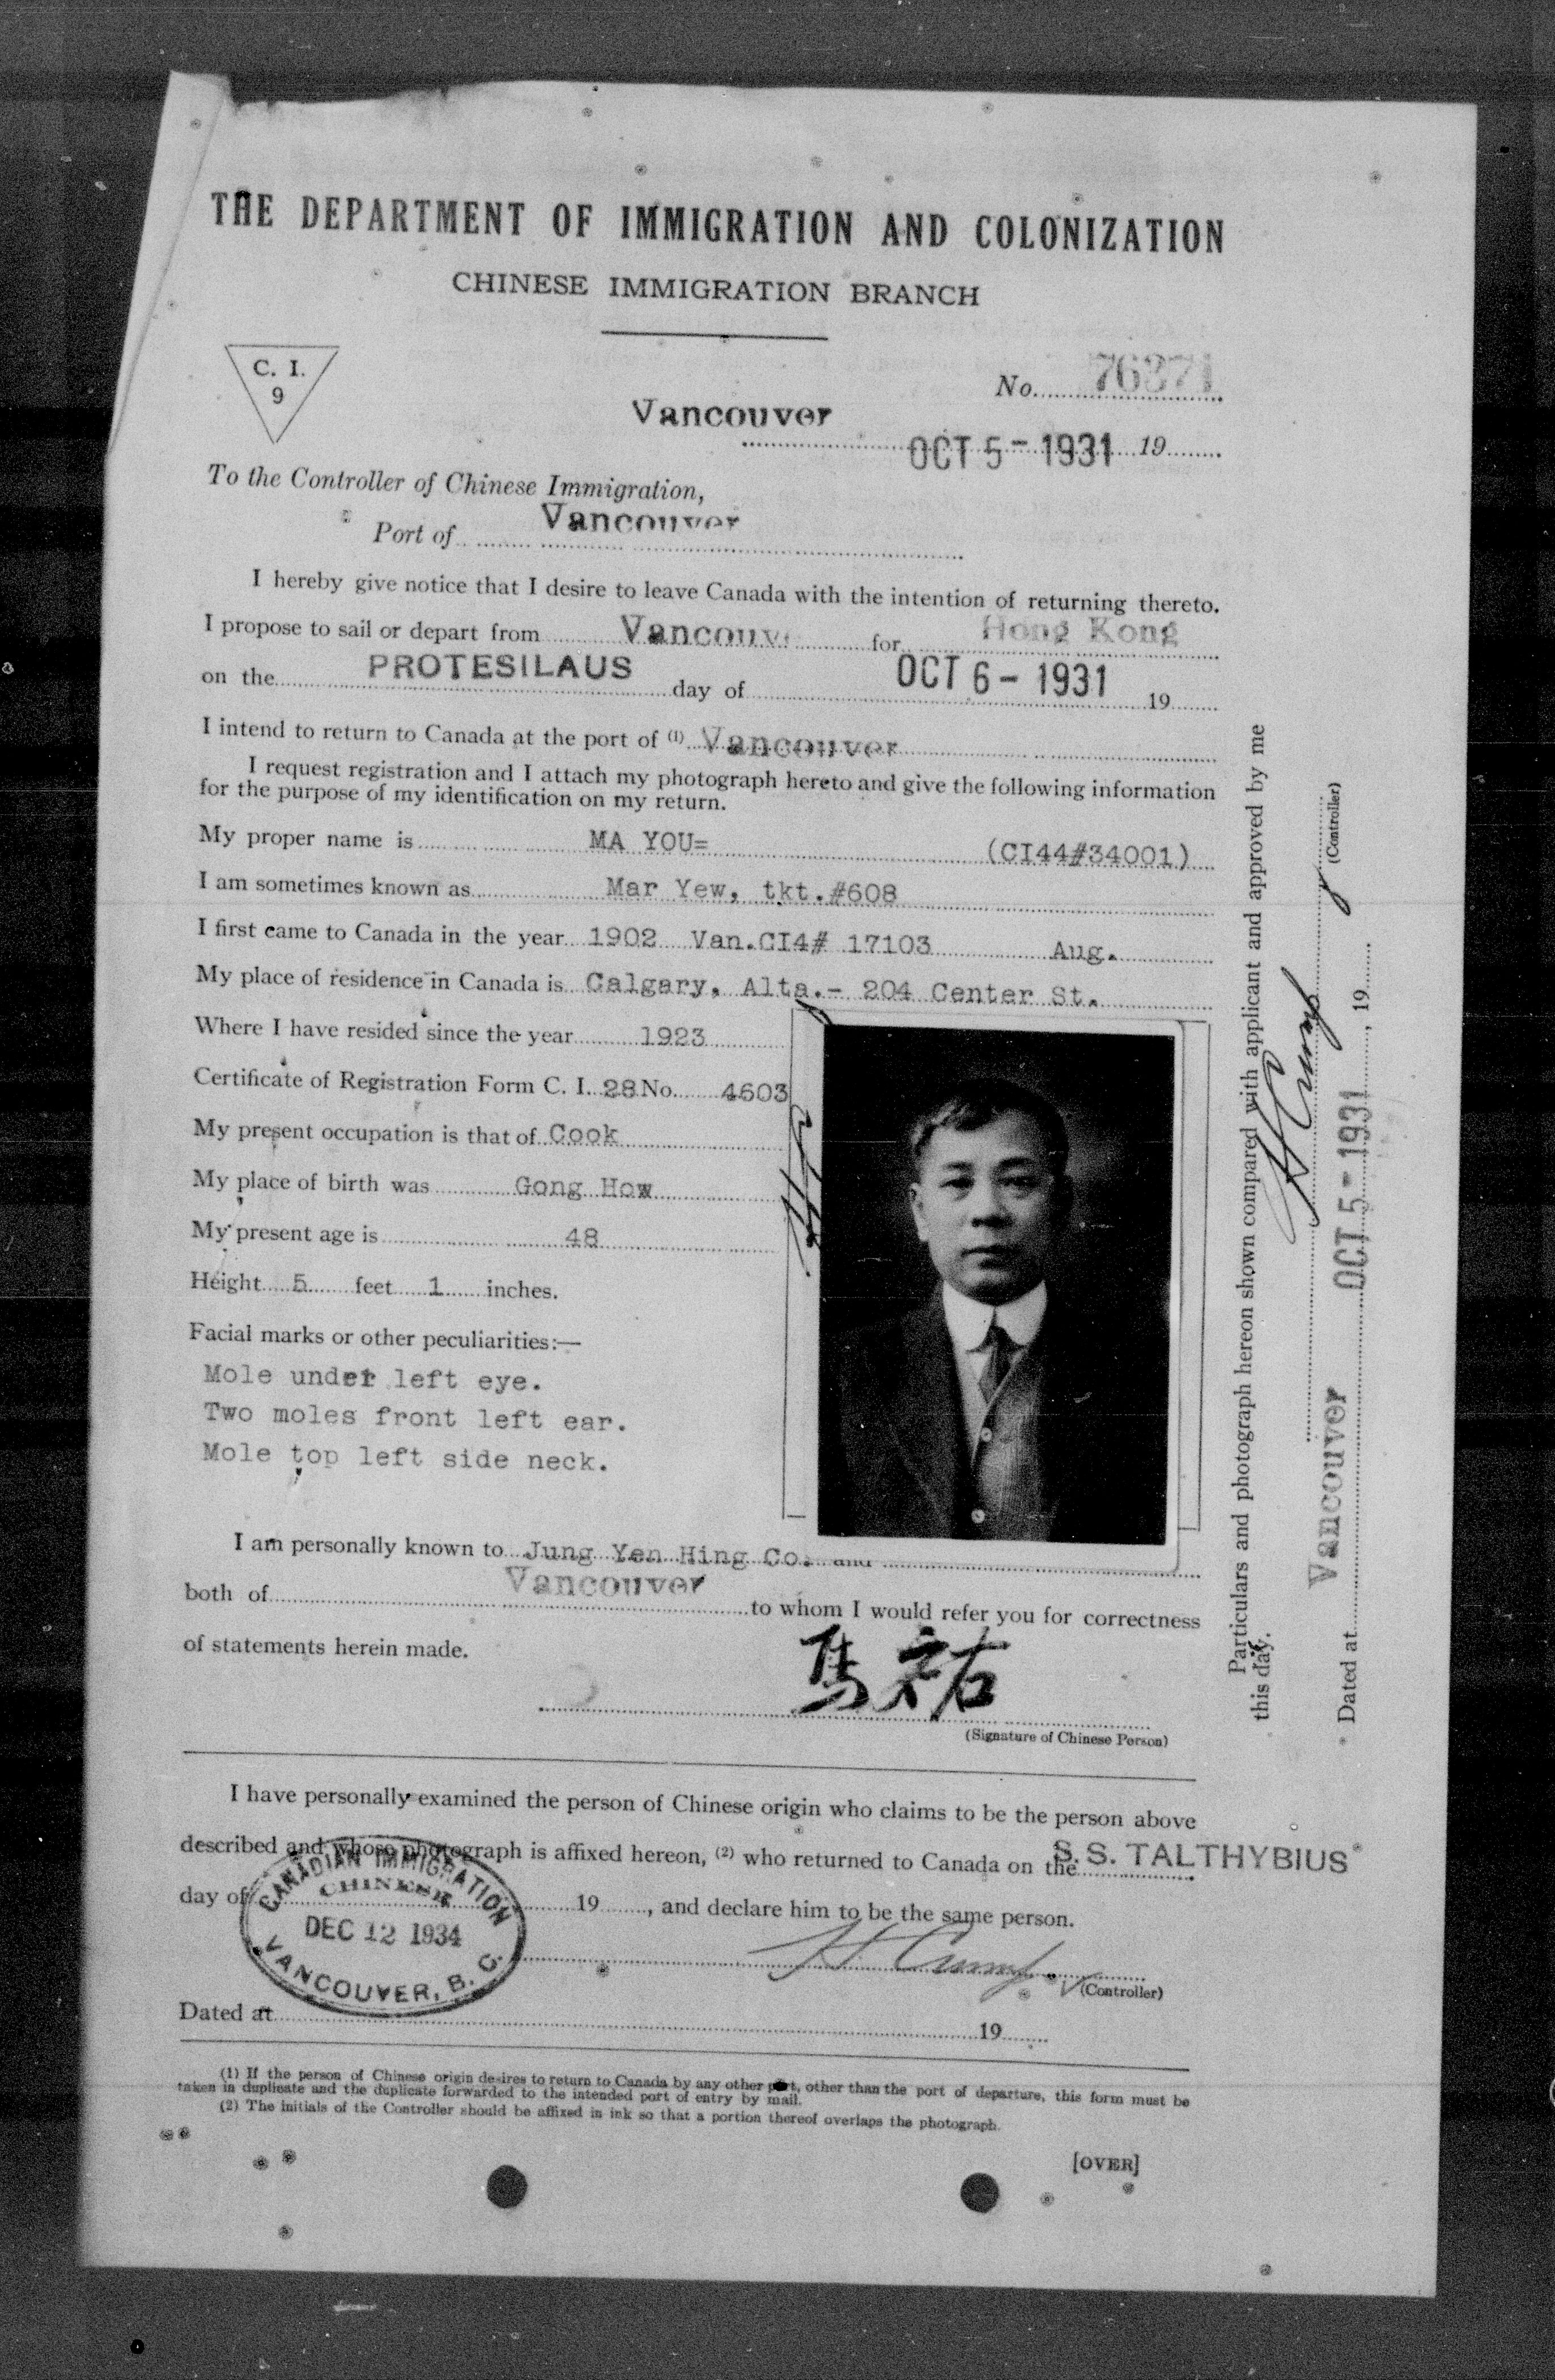 THE DEPARTMENT OF IMMIGRATION AND COLONIZATION
CHINESE IMMIGRATION BRANCH
C. I.
9
No. 76371
Vancouver
OCT 5 - 1931 19
To the Controller of Chinese Immigration,
Port of Vancouver
I hereby give notice that I desire to leave Canada with the intention of returning thereto.
I propose to sail or depart from Vancouv for Hong Kong
on the PROTESILAUS day of OCT 6 - 1931 19
I intend to return to Canada at the port of (1) Vancouver
I request registration and I attach my photograph hereto and give the following information
for the purpose of my identification on my return.
My proper name is MA YOU= (CI44#34001)
I am sometimes known as Mar Yew, tkt.#608
I first came to Canada in the year 1902 Van.CI4# 17103 Aug.
My place of residence in Canada is Calgary, Alta.- 204 Center St.
Where I have resided since the year 1923
Certificate of Registration Form C. I. 28 No. 4603
My present occupation is that of Cook
My place of birth was Gong How
My present age is 48
Height 5 feet 1 inches.
Facial marks or other peculiarities:—
Mole under left eye.
Two moles front left ear.
Mole top left side neck.
I am personally known to Jung Yen Hing Co. and
both of Vancouver to whom I would refer you for correctness
of statements herein made.
馬祐
(Signature of Chinese Person)
I have personally examined the person of Chinese origin who claims to be the person above
described and whose photograph is affixed hereon, (2) who returned to Canada on the S.S. TALTHYBIUS
day of 19 , and declare him to be the same person.
CANADIAN IMMIGRATION
CHINESE
DEC 12 1934
VANCOUVER, B. C.
(Controller)
Dated at 19
(1) If the person of Chinese origin desires to return to Canada by any other port, other than the port of departure, this form must be
taken in duplicate and the duplicate forwarded to the intended port of entry by mail.
(2) The initials of the Controller should be affixed in ink so that a portion thereof overlaps the photograph.
[OVER]
Particulars and photograph hereon shown compared with applicant and approved by me
this day.
(Controller)
Dated at Vancouver OCT 5 - 1931, 19